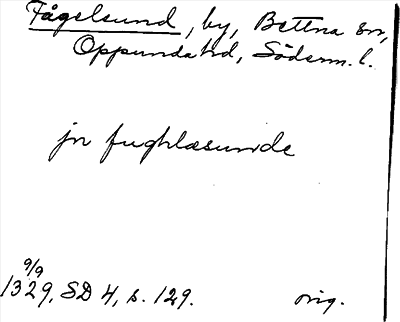 Fågelsund, by, Bettna sn,
Oppunda hd, Söderm. l.
jn fughlæsunde
9/9
1329, SD 4, s. 129. orig.